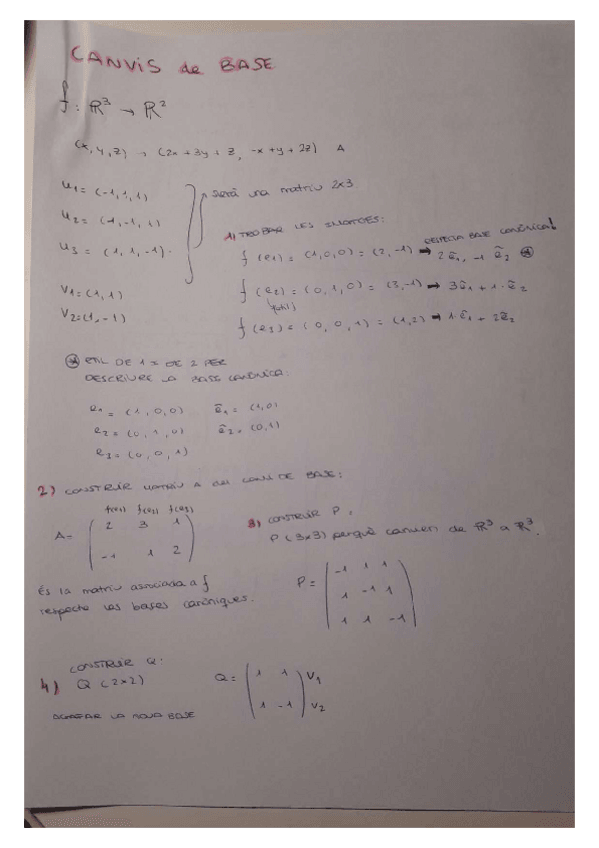 CANVIS de BASE
f: R³ → R²
(x, y, z) → (2x + 3y + z, -x + y + 2z) A
u1 = (-1, 1, 1)
u2 = (1, -1, 1)
u3 = (1, 1, -1).
v1 = (1, 1)
v2 = (1, -1)
serà una matriu 2x3.
1) TROBAR LES IMATGES:
RESPECTA BASE CANÒNICA!
f(e1) = (1,0,0) = (2,-1) → 2ẽ1, -1 ẽ2 *
f(e2) = (0,1,0) = (3,-1) → 3ẽ1 + 1·ẽ2
f(e3) = (0,0,1) = (1,2) → 1·ẽ1 + 2ẽ2
DE 1 DE 2 PER
DESCRIURE LA BASE CANÒNICA:
e1 = (1,0,0) ẽ1 = (1,0)
e2 = (0,1,0) ẽ2 = (0,1)
e3 = (0,0,1)
2) CONSTRUIR MATRIU A del CANVI DE BASE:
f(e1) f(e2) f(e3)
A = ( 2 3 1
-1 1 2 )
És la matriu associada a f
respecte les bases canòniques.
3) CONSTRUIR P.
P (3x3) perquè canviem de R³ a R³.
P = ( -1 1 1
1 -1 1
1 1 -1 )
4) CONSTRUIR Q.
Q (2x2)
AGAFAR LA NOVA BASE
Q = ( 1 1 ) v1
( 1 -1 ) v2